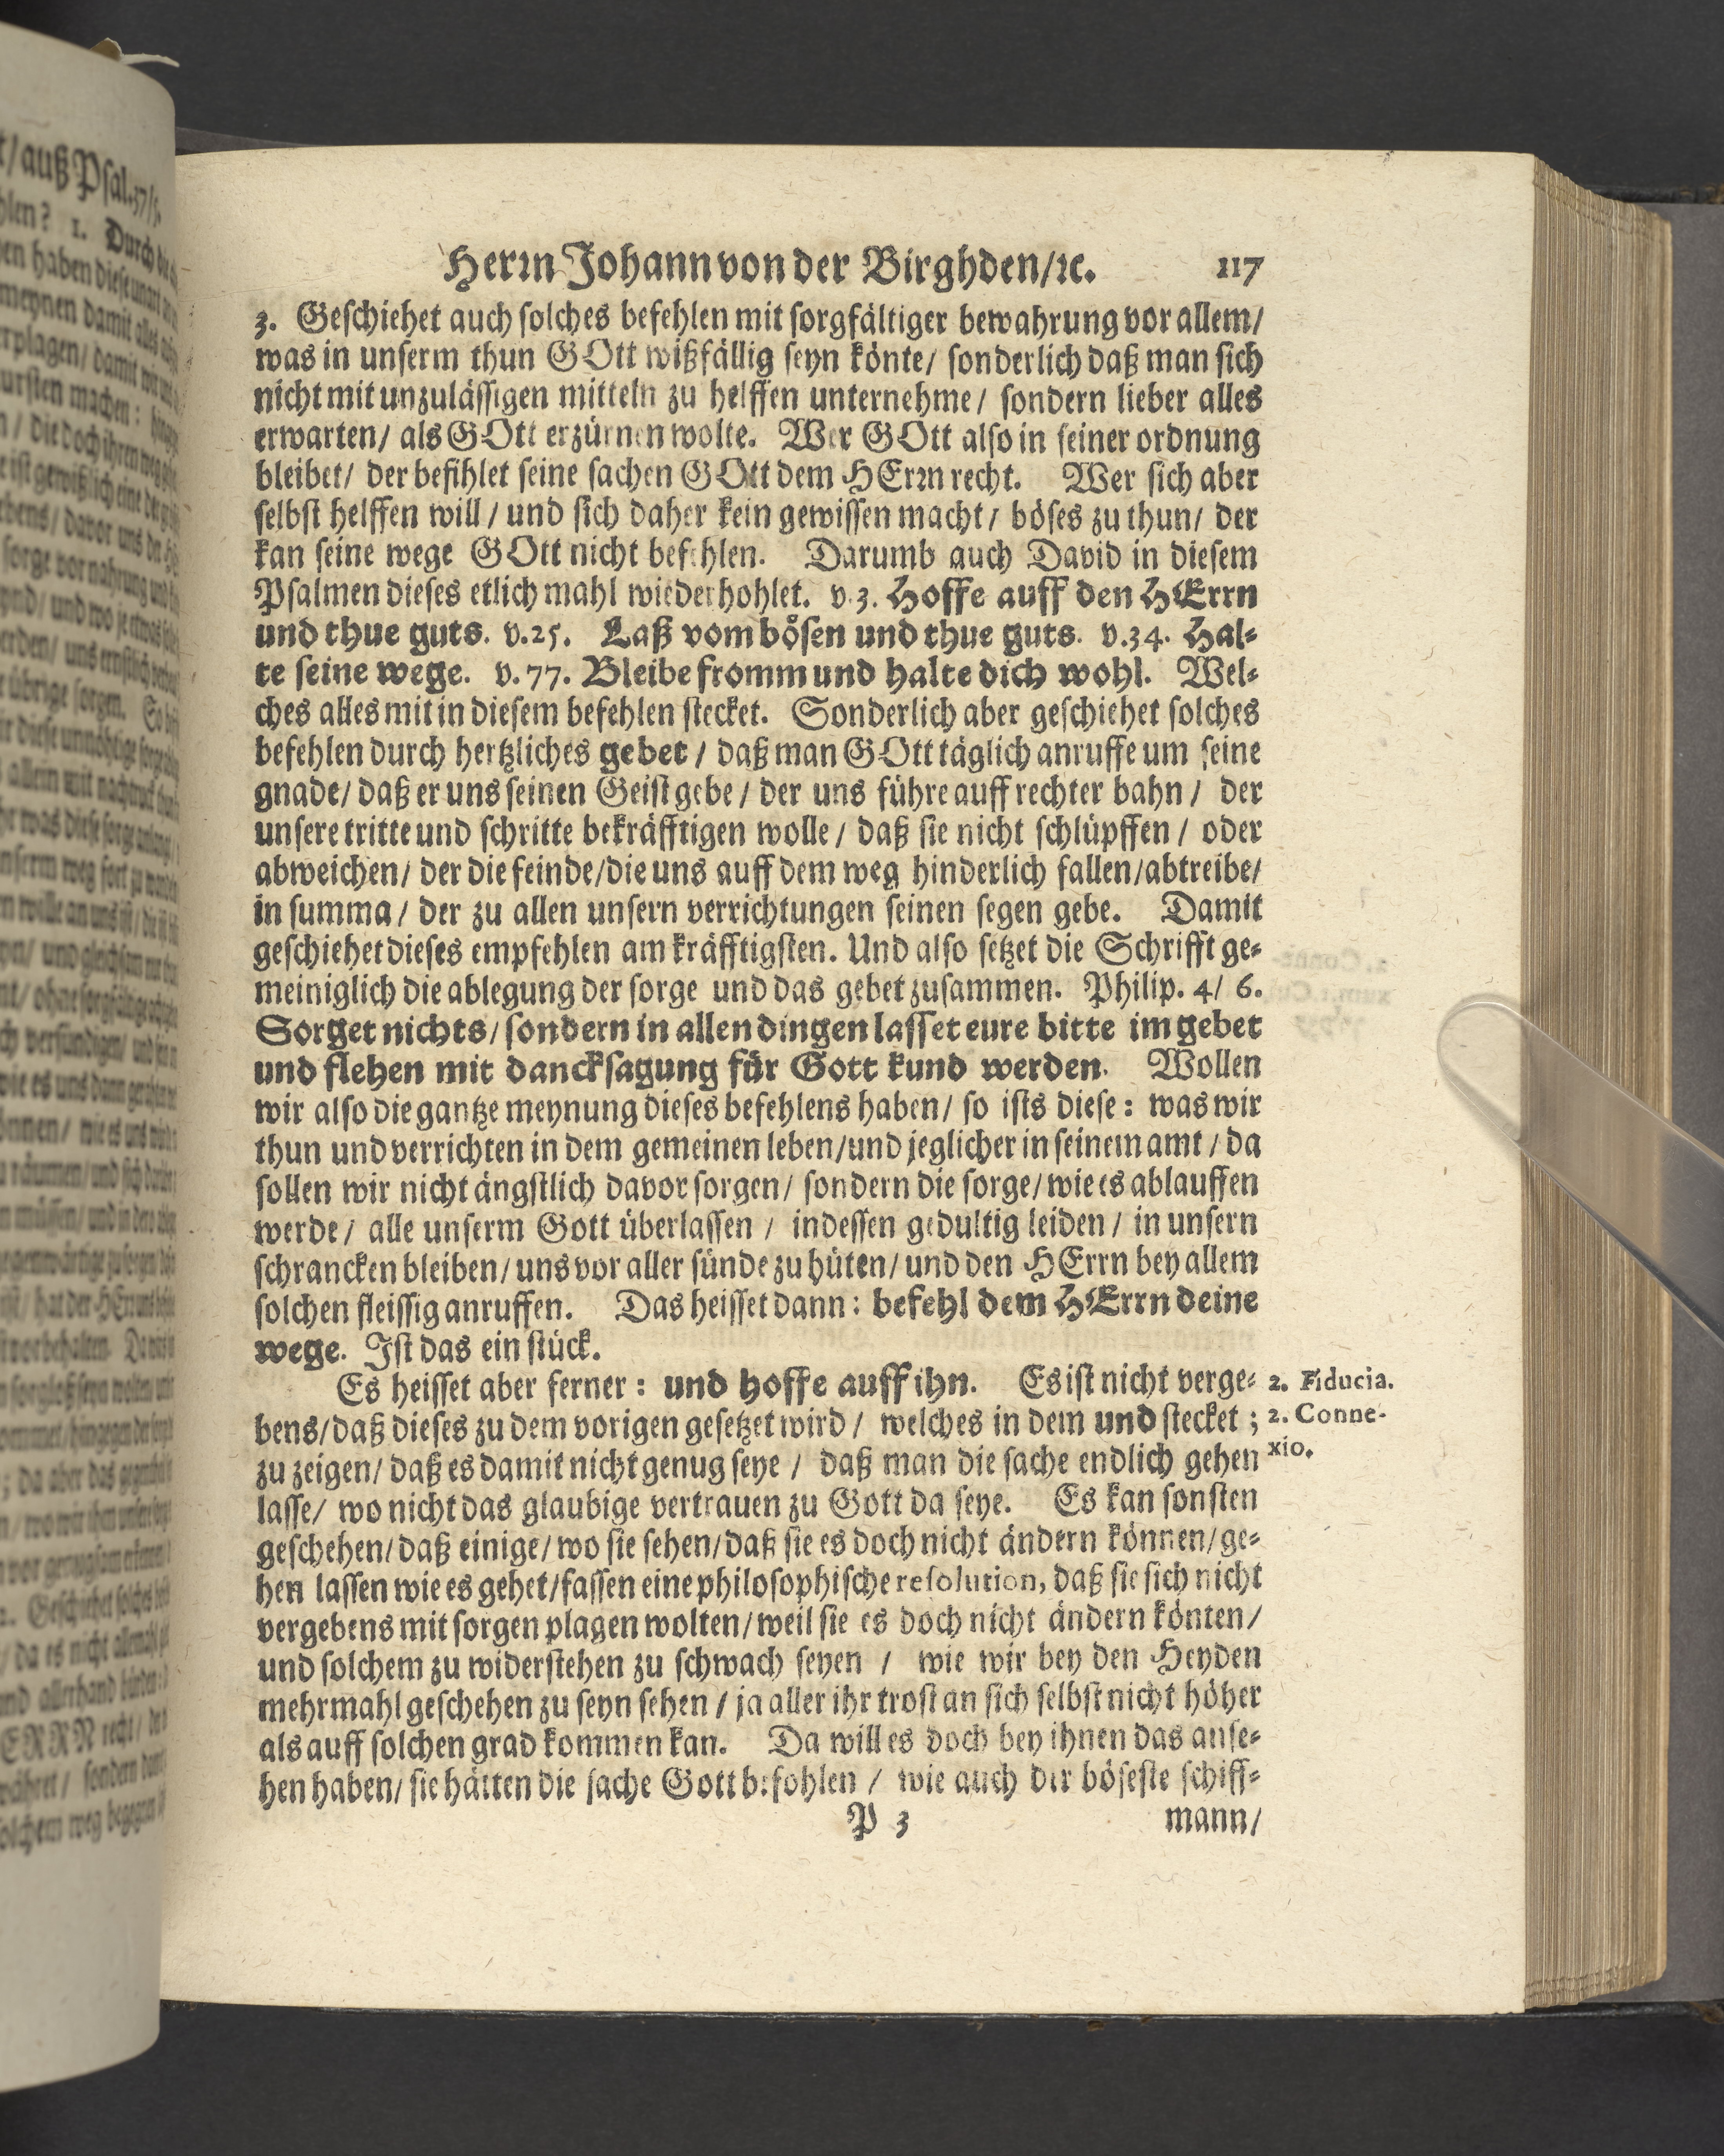 Herꝛn Johann von der Birghden/ꝛc. 117
3. Geschiehet auch solches befehlen mit sorgfältiger bewahrung vor allem/
was in unserm thun GOtt mißfällig seyn könte/ sonderlich daß man sich
nicht mit unzulässigen mitteln zu helffen unternehme/ sondern lieber alles
erwarten/ als GOtt erzürnen wolte. Wer GOtt also in seiner ordnung
bleibet/ der befihlet seine sachen GOtt dem HErꝛn recht. Wer sich aber
selbst helffen will/ und sich daher kein gewissen macht/ böses zu thun/ der
kan seine wege GOtt nicht befehlen. Darumb auch David in diesem
Psalmen dieses etlich mahl wiederhohlet. v. 3. Hoffe auff den HErrn
und thue guts. v. 25. Laß vom bösen und thue guts. v. 34. Hal-
te seine wege. v. 77. Bleibe fromm und halte dich wohl. Wel-
ches alles mit in diesem befehlen stecket. Sonderlich aber geschiehet solches
befehlen durch hertzliches gebet/ daß man GOtt täglich anruffe um seine
gnade/ daß er uns seinen Geist gebe/ der uns führe auff rechter bahn/ der
unsere tritte und schritte bekräfftigen wolle/ daß sie nicht schlüpffen/ oder
abweichen/ der die feinde/ die uns auff dem weg hinderlich fallen/ abtreibe/
in summa/ der zu allen unsern verrichtungen seinen segen gebe. Damit
geschiehet dieses empfehlen am kräfftigsten. Und also setzet die Schrifft ge-
meiniglich die ablegung der sorge und das gebet zusammen. Philip. 4/ 6.
Sorget nichts/ sondern in allen dingen lasset eure bitte im gebet
und flehen mit dancksagung für Gott kund werden. Wollen
wir also die gantze meynung dieses befehlens haben/ so ists diese: was wir
thun und verrichten in dem gemeinen leben/ und jeglicher in seinem amt/ da
sollen wir nicht ängstlich davor sorgen/ sondern die sorge/ wie es ablauffen
werde/ alle unserm Gott überlassen/ indessen gedultig leiden/ in unsern
schrancken bleiben/ uns vor aller sünde zu hüten/ und den HErrn bey allem
solchen fleissig anruffen. Das heisset dann: befehl dem HErrn deine
wege. Ist das ein stück.
Es heisset aber ferner: und hoffe auff ihn. Es ist nicht verge- 2. Fiducia.
bens/ daß dieses zu dem vorigen gesetzet wird/ welches in dem und stecket; 2. Conne-
zu zeigen/ daß es damit nicht genug seye/ daß man die sache endlich gehen xio.
lasse/ wo nicht das glaubige vertrauen zu Gott da seye. Es kan sonsten
geschehen/ daß einige/ wo sie sehen/ daß sie es doch nicht ändern können/ ge-
hen lassen wie es gehet/ fassen eine philosophische resolution, daß sie sich nicht
vergebens mit sorgen plagen wolten/ weil sie es doch nicht ändern könten/
und solchem zu widerstehen zu schwach seyen/ wie wir bey den Heyden
mehrmahl geschehen zu seyn sehen/ ja aller ihr trost an sich selbst nicht höher
als auff solchen grad kommen kan. Da will es doch bey ihnen das anse-
hen haben/ sie hätten die sache Gott befohlen/ wie auch der böseste schiff-
P 3 mann/